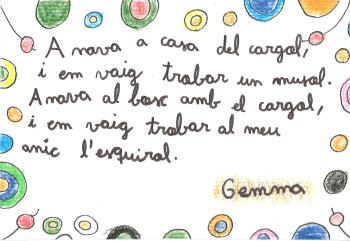 A nava a casa del cargol,
i em vaig trobar un musol.
A nava al bosc amb el cargol,
i em vaig trobar al meu
amic l'esquirol.
Gemma